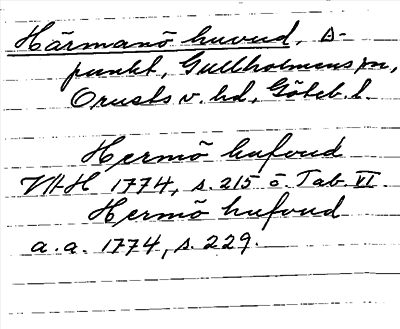 Härmanö huvud, S-
punkt, Gullholmens sn,
Orusts v. hd, Göteb. l.
Hermö hufvud
VHH 1774, s. 215 o. Tab. VI.
Hermö hufvud
a. a. 1774, s. 229.